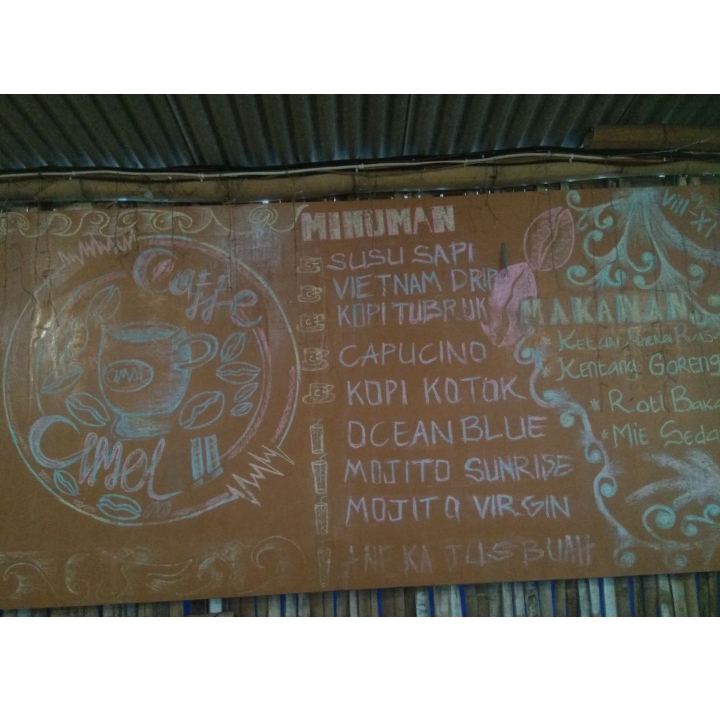 Caffe
CIMOL
CIMOL II
MINUMAN
SUSU SAPI
VIETNAM DRIP
KOPI TUBRUK
CAPUCINO
KOPI KOTOK
OCEAN BLUE
MOJITO SUNRISE
MOJITO VIRGIN
ANEKA JUS BUAH
VIII
XI
MAKANAN
* Ketan
* Kentang GORENG
* Roti Baka
* Mie Seda